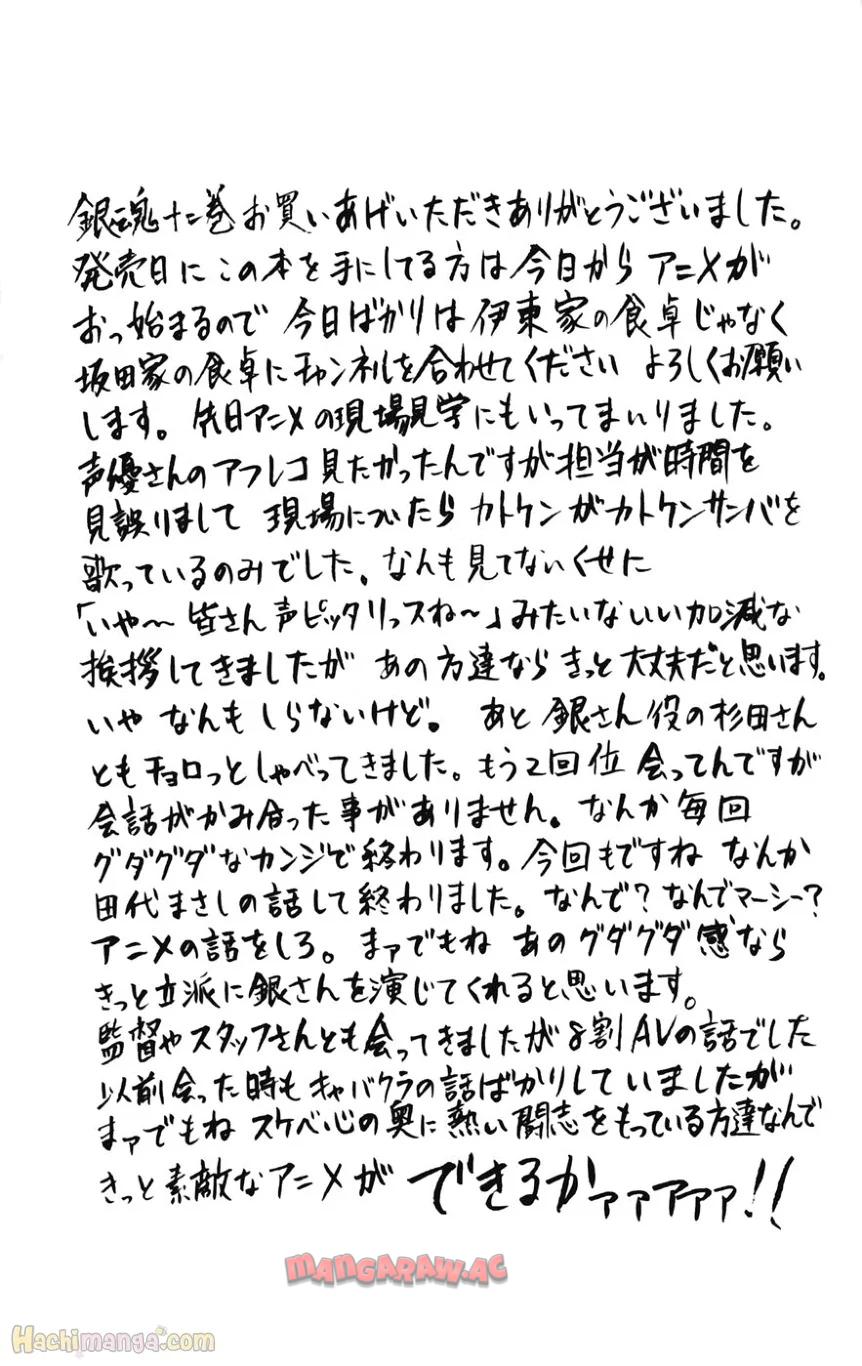 銀魂十二巻お買いあげいただきありがとうございました。
発売日にこの本を手にしてる方は今日からアニメが
おっ始まるので 今日ばかりは伊東家の食卓じゃなく
坂田家の食卓にチャンネルを合わせてください よろしくお願い
します。先日アニメの現場見学にもいってまいりました。
声優さんのアフレコ見たかったんですが担当が時間を
見誤りまして 現場についたらカトケンがカトケンサンバを
歌っているのみでした。なんも見てないくせに
「いや〜皆さん声ピッタリっスね〜」みたいないい加減な
挨拶してきましたが あの方達ならきっと大丈夫だと思います。
いや なんもしらないけど。 あと 銀さん役の杉田さん
ともチョロっとしゃべってきました。もう2回位 会ってんですが
会話がかみ合った事がありません。なんか毎回
グダグダなカンジで終わります。今回もですね なんか
田代まさしの話して終わりました。なんで?なんでマーシー?
アニメの話をしろ。まァでもね あのグダグダ感なら
きっと立派に銀さんを演じてくれると思います。
監督やスタッフさんとも会ってきましたが8割AVの話でした
以前会った時もキャバクラの話ばかりしていましたが
まァでもね スケベ心の奥に熱い闘志をもっている方達なんで
きっと素敵なアニメが できるかァァァァァ!!
MANGARAW.AC
Hachimanga.com